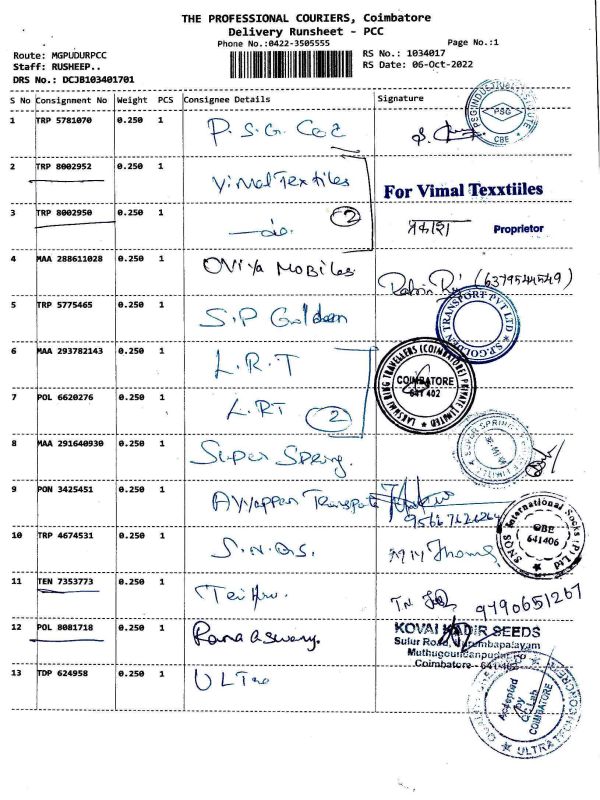 THE PROFESSIONAL COURIERS, Coimbatore
Delivery Runsheet - PCC
Phone No.:0422-3505555
Page No.:1
Route: MGPUDURPCC
RS No.: 1034017
Staff: RUSHEEP..
RS Date: 06-Oct-2022
DRS No.: DCJB103401701
S No Consignment No Weight PCS Consignee Details Signature
1 TRP 5781070 0.250 1 P.S.G. PSG INDUSTRIAL INSTITUTE PSG CBE
2 TRP 8002952 0.250 1 Vimal Textiles For Vimal Texxtiiles
3 TRP 8002950 0.250 1 do. 2 प्रकाश Proprietor
4 MAA 288611028 0.250 1 Oviya Mobiles (6379544549)
5 TRP 5775465 0.250 1 S.P Golden S.P.GOLDEN TRANSPORT PVT LTD
6 MAA 293782143 0.250 1 L.R.T LAKSHMI RING TRAVELLERS (COIMBATORE) PRIVATE LIMITED COIMBATORE 641 402
7 POL 6620276 0.250 1 L.RT 2
8 MAA 291640930 0.250 1 Super Spring. SUPER SPRING
9 PON 3425451 0.250 1 Ayyappan Transport
10 TRP 4674531 0.250 1 S.N.Q.S. SNQS International Socks (P) Ltd CBE 641406
11 TEN 7353773 0.250 1 TN 9790651267
12 POL 8081718 0.250 1 KOVAI KADIR SEEDS
Sulur Road,
Muthugoundanpudur
Coimbatore - 641
13 TDP 624958 0.250 1 ULTra Accepted by QC Lab COIMBATORE ULTRATECH